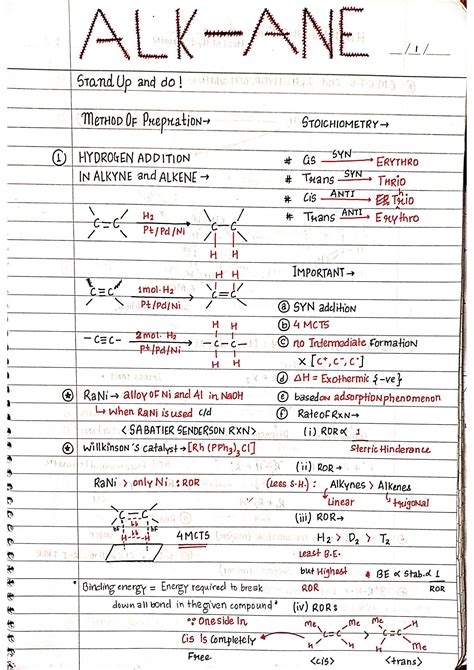 ALK-ANE
_/1/_
Stand Up and do!
METHOD OF Prepration→
① HYDROGEN ADDITION
IN ALKYNE and ALKENE →
C=C H2 Pt/Pd/Ni C-C
H H
C≡C 1mol. H2 Pt/Pd/Ni H H C=C
-C≡C- 2mol. H2 Pt/Pd/Ni H H -C-C- H H
* RaNi → alloy of Ni and Al in NaOH
↳ When RaNi is used c/d
<SABATIER SENDERSON RXN>
* Willkinson's catalyst → [Rh (PPh3)3Cl]
RaNi > only Ni : ROR
C=C
H H
4 MCTS
* Binding energy = Energy required to break
down all bond in the given compound
STOICHIOMETRY →
# Cis SYN → ERYTHRO
# Trans SYN → THRIO
# Cis ANTI → Thrio
# Trans ANTI → Erythro
IMPORTANT →
ⓐ SYN addition
ⓑ 4 MCTS
ⓒ no Intermediate Formation
× [C+, C-, C•]
ⓓ ΔH = Exothermic {-ve}
ⓔ based on adsorption phenomenon
ⓕ Rate of Rxn →
(i) ROR ∝ 1
Sterric Hinderance
(ii) ROR →
(less S.H.) : Alkynes > Alkenes
Linear trigonal
(iii) ROR →
H2 > D2 > T2
Least B.E.
but Highest ROR
* BE ∝ Stab. ∝ 1
ROR
(iv) ROR :
∵ One side In
Cis Is Completely
Free
Me C=C Me > Me C=C Me
<cis> <trans>